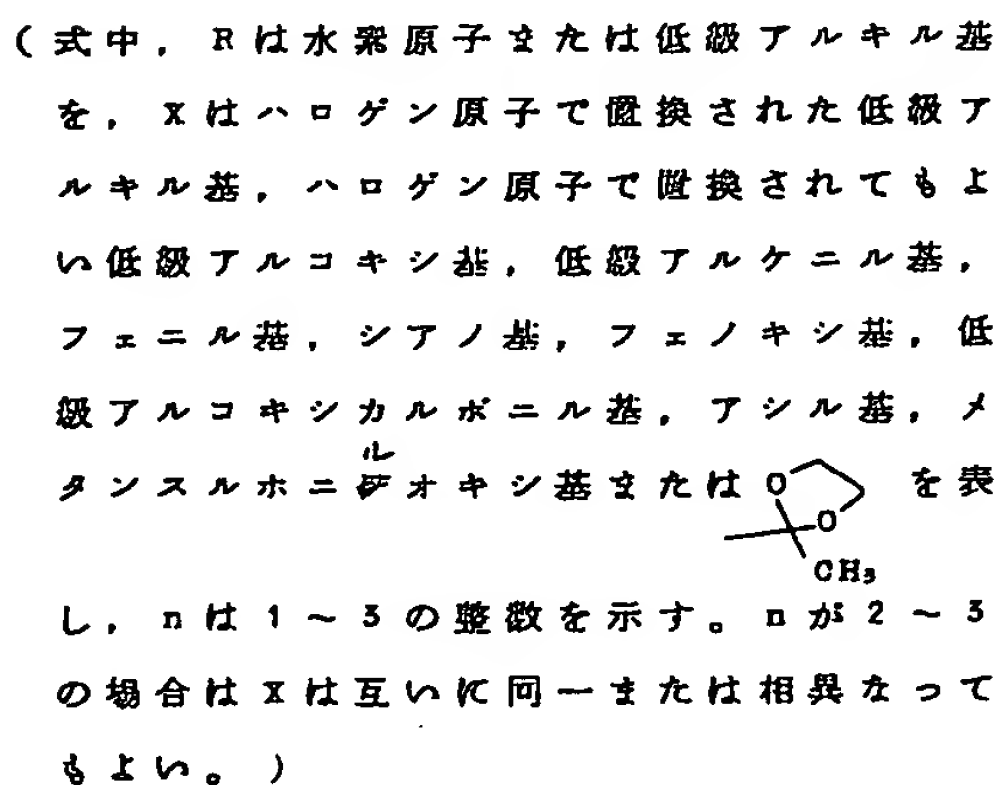 (式中,Rは水素原子または低級アルキル基
を,Xはハロゲン原子で置換された低級ア
ルキル基,ハロゲン原子で置換されてもよ
い低級アルコキシ基,低級アルケニル基,
フェニル基,シアノ基,フェノキシ基,低
級アルコキシカルボニル基,アシル基,メ
タンスルホニルオキシ基または O O CH3 を表
し,nは1~3の整数を示す。nが2~3
の場合はXは互いに同一または相異なって
もよい。)